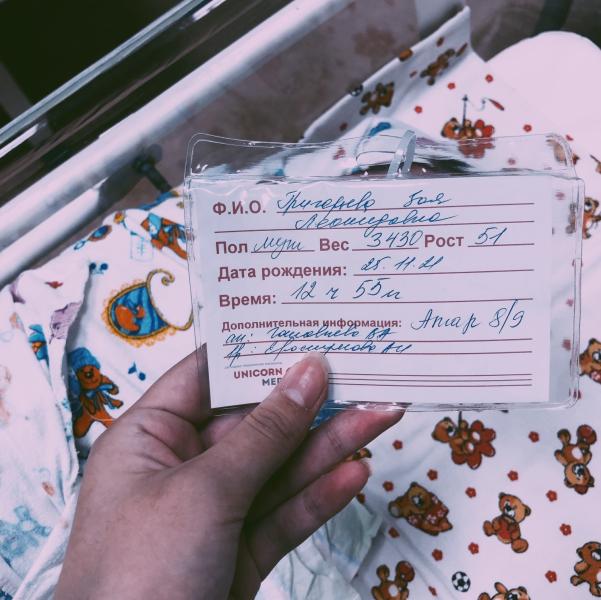 Ф.И.О. Григорьева Зоя
Леонидовна
Пол муж Вес 3430 Рост 51
Дата рождения: 25.11.21
Время: 12 ч 55 м
Дополнительная информация: Апгар 8/9
UNICORN